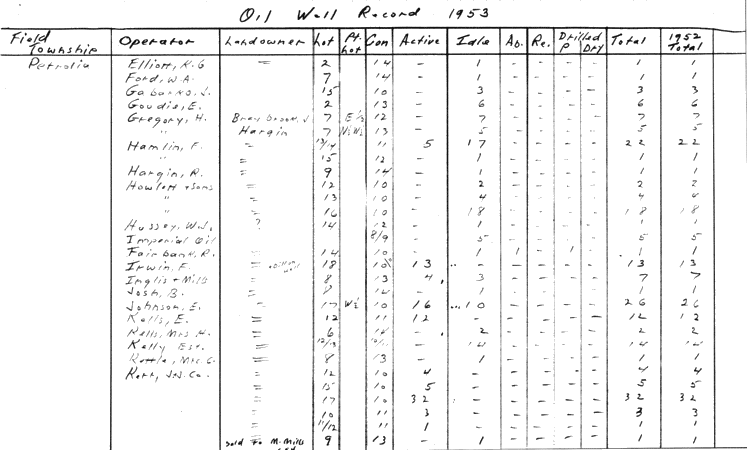 Oil Well Record 1953
Field Township Operator Landowner Lot Pt. Lot Con. Active Idle Ab. Re. Drilled P Dry Total 1952 Total
Petrolia Elliott, R. G = 2 14 - 1 - - - - 1 1
Ford, W.A. 7 14 - 1 - - - - 1 1
Gabarks, J. 15 10 - 3 - - - - 3 3
Goudie, E. 2 13 - 6 - - - - 6 6
Gregory, H. Braybrook, J 7 E½ 12 - 7 - - - - 7 7
" Hargin 7 N½W½ 13 - 5 - - - - 5 5
Hamlin, F. = 13/14 11 5 17 - - - - 22 22
" = 15 12 - 1 - - - - 1 1
Hargin, R. = 9 14 - 1 - - - - 1 1
Howlett + Sons = 12 10 - 2 - - - - 2 2
" = 13 10 - 4 - - - - 4 4
" = 16 10 - 18 - - - - 18 18
Hussey, W.J. ? 14 12 - 1 - - - - 1 1
Imperial Oil 8/9 - 5 - - - - 5 5
Fairbank, R. = 14 10 - 1 1 - 1 - 1 1
Irwin, F. = 18 10 13 - - - - 13 13
Inglis + Mills = 8 13 4 3 - - - - 7 7
Josh, B. = 8 14 - 1 - - - - 1 1
Johnson, E. = 17 W½ 10 16 10 - - - - 26 26
Kells, E. = 12 11 12 - - - - - 12 12
Kells, Mrs H. = 6 14 - 2 - - - - 2 2
Kelly Est. = 12/13 - 14 - - - - 14 14
Kettle, Mrs. C. = 8 13 - 1 - - - - 1 1
Kerr, J.J. Co. = 12 10 4 - - - - - 4 4
= 15 10 5 - - - - - 5 5
= 17 10 32 - - - - - 32 32
= 10 11 3 - - - - - 3 3
= 11/12 11 1 - - - - - 1 1
Sold To M. Mills 9 13 - 1 - - - - 1 1